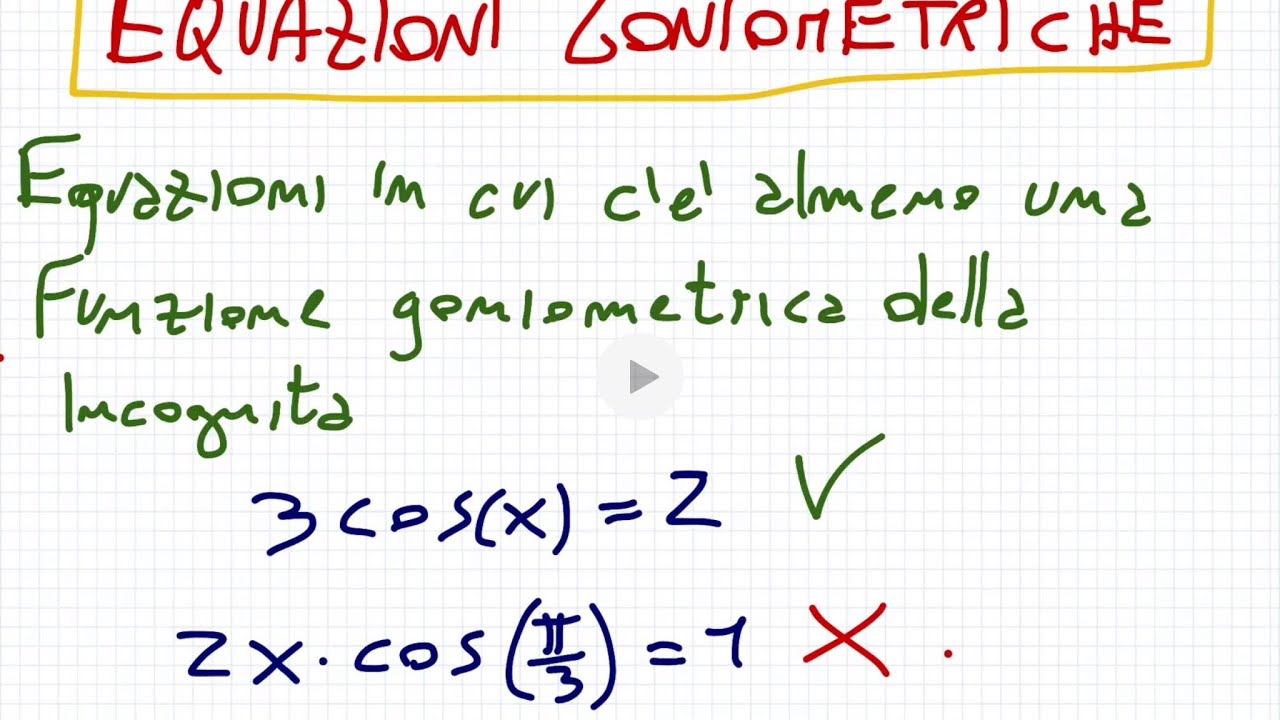 EQUAZIONI GONIOMETRICHE
Equazioni in cui c'e' almeno una
Funzione goniometrica della
Incognita
3 cos(x) = 2
2x · cos(π/3) = 1